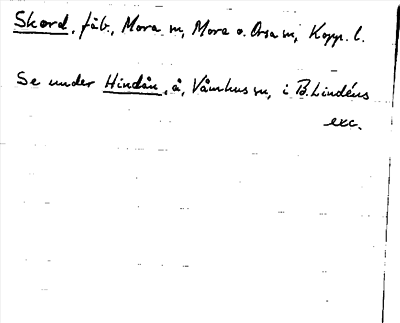 Skord, fäb., Mora sn, Mora o. Orsa sn, Kopp. l.
Se under Hindån, å, Våmhus sn, i B. Lindéns
exc.